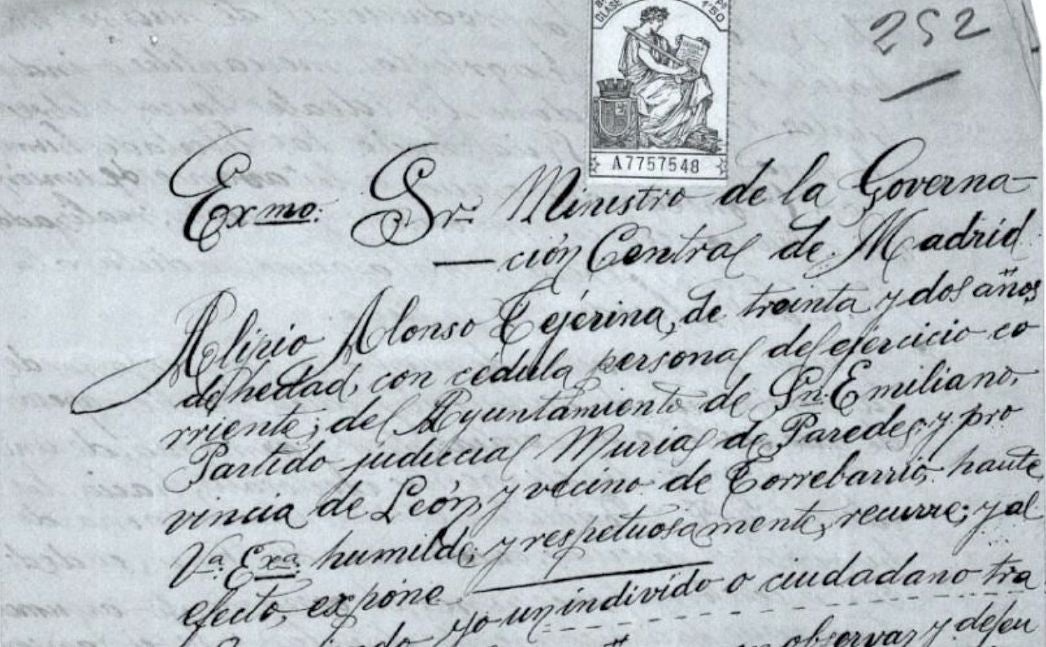 CLASE
1'50
252
A7757548
Exmo. Sr. Ministro de la Governa-
—ción Central de Madrid
Alipio Alonso Tejerina, de treinta y dos años
de hedad, con cédula personal del ejercicio co
rriente; del Ayuntamiento de Sn. Emiliano,
Partido judiccial Murias de Paredes, y pro
vincia de León, y vecino de Torrebarrio, haute
Va. Exa. humilde, y respetuosamente, recurre; y al
efecto, expone
yo un individo o ciudadano tra
observar y defen